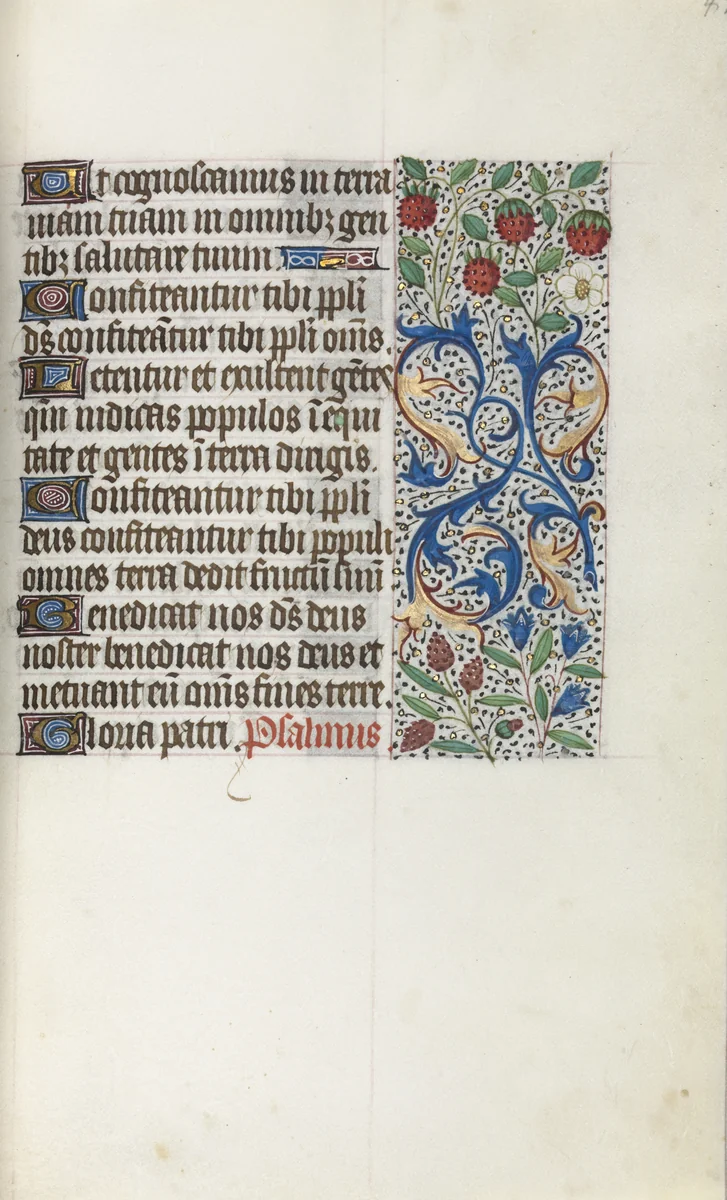 Ut cognoscamus in terra
uiam tuam in omnibꝫ gen
tibꝫ salutare tuum.
Confiteantur tibi ppl̄i
ds̄ confiteāt̄ur tibi ppl̄i om̄s.
Letentur et exultent gētes
qm̄ iudicas populos ī equi
tate et gentes ī terra dirigis.
Confiteantur tibi ppl̄i
deus confiteantur tibi populi
omnes terra dedit fructū suū
Benedicat nos ds̄ deus
noster benedicat nos deus et
metuant eū om̄s fines terre.
Gloria patri. Psalmus.